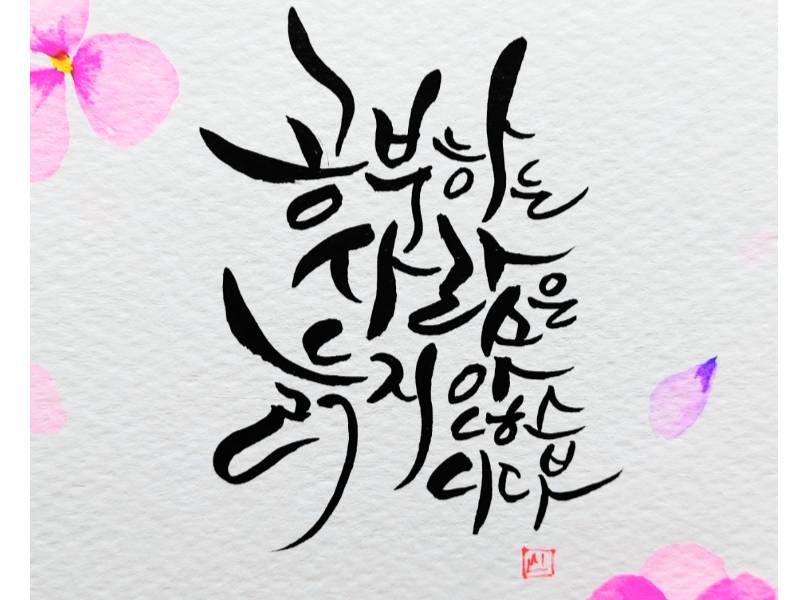 공부하는
사람은
늙지 않습
니다